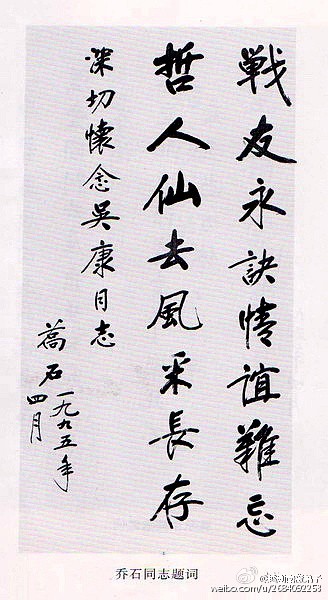 戦友永訣情誼難忘
哲人仙去風采長存
深切懷念吳康同志
蕎石
一九九五年
四月
乔石同志题词
weibo.com/u/2684092253